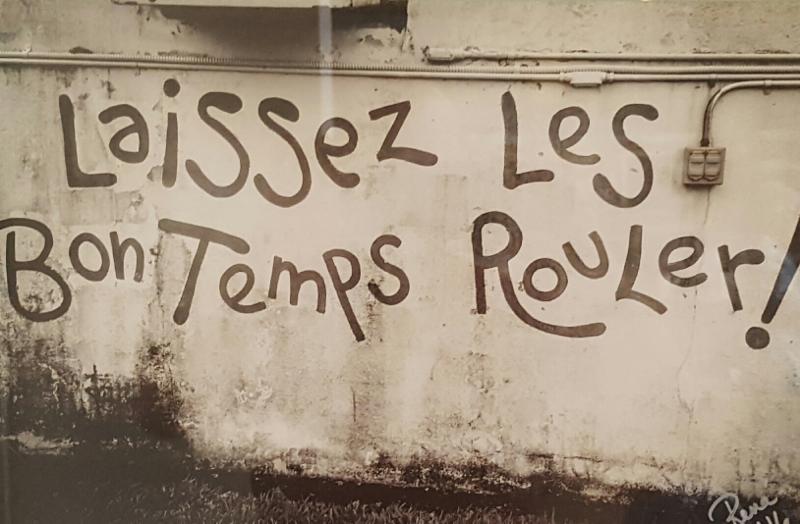 Laissez Les
Bon Temps Rouler!
René